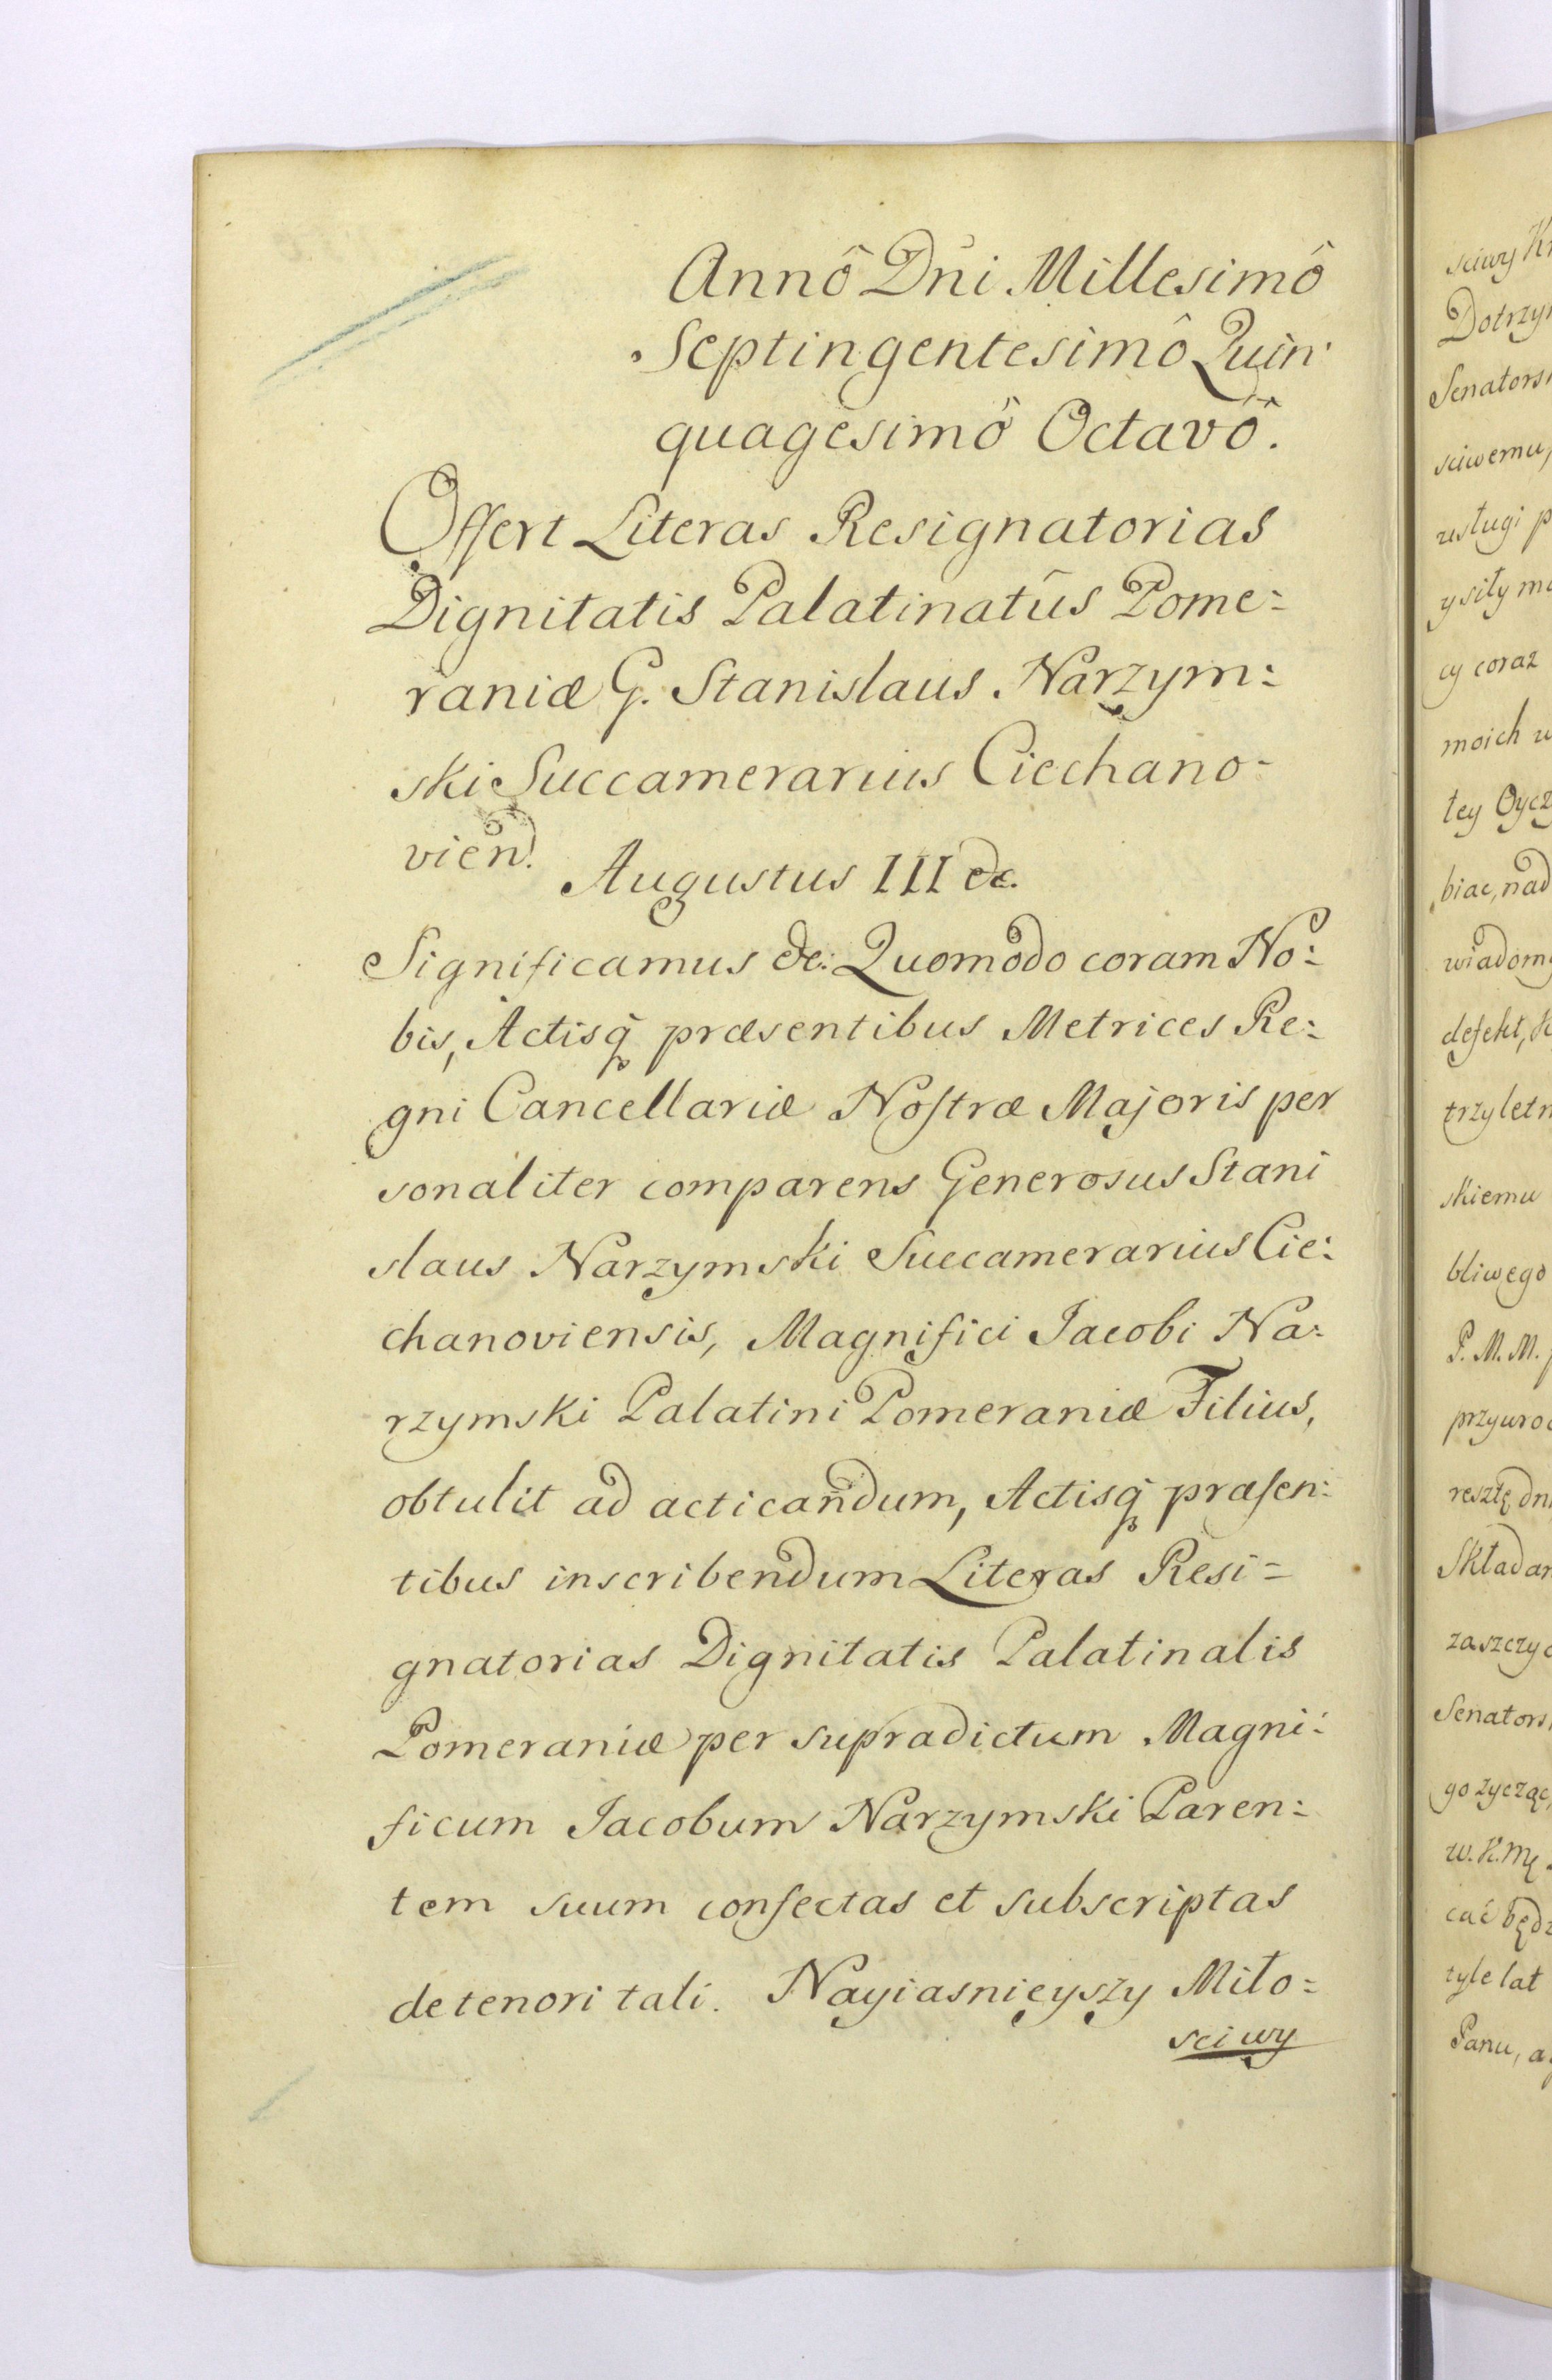 Annô Dñi Millesimô
Septingentesimô Quin
quagesimô Octavô.
Offert Literas Resignatorias
Dignitatis Palatinatûs Pome:
raniæ G. Stanislaus Narzym:
ski Succamerarius Ciechano-
vien.
Augustus III &c.
Significamus &c: Quomodo coram No:
bis, Actisq præsentibus Metrices Re:
gni Cancellariæ Nostræ Majoris per
sonaliter comparens Generosus Stani
slaus Narzymski Succamerarius Cie:
chanoviensis, Magnifici Jacobi Na:
rzymski Palatini Pomeraniæ Filius,
obtulit ad acticandum, Actisq præsen:
tibus inscribendum Literas Resi=
gnatorias Dignitatis Palatinalis
Pomeraniæ per supradictum Magni:
ficum Jacobum Narzymski Paren:
tem suum confectas et subscriptas
de tenori tali. Nayiasnieyszy Miło=
sciwy
sciwy
Dotrzy
Senators
sciwemu,
usługi p
y siły
cy coraz
moich
tey Oycz
biac, nad
wiadom
defekt,
trzyletn
skiemu
bliwego
P. M. M.
przywro
resztę dn
Składa
zaszczyc
Senators
go życząc,
w. K. Mę
cać będz
tyle lat
Panu, a